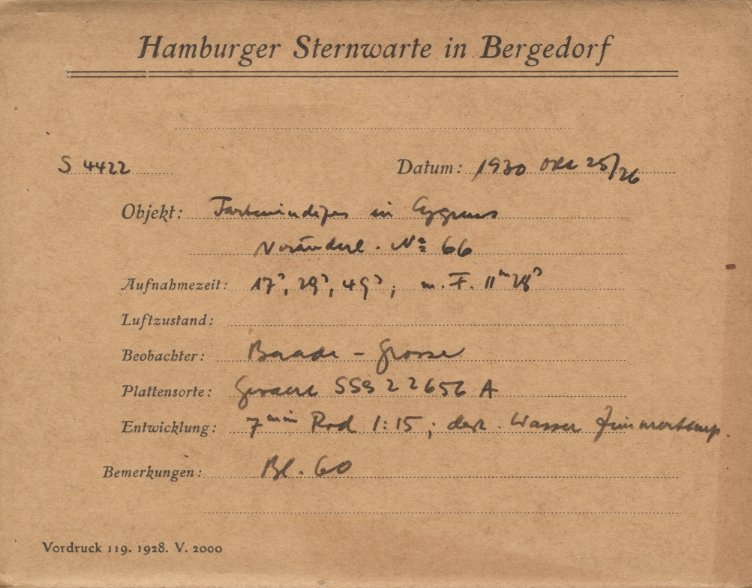 Hamburger Sternwarte in Bergedorf
S 4422
Datum: 1930 Okt 25/26
Objekt: Farbenindizes in Cygnus
Veränderl. No 66
Aufnahmezeit: 17s, 29s, 49s; m. F. 11m 28s
Luftzustand:
Beobachter: Baade - Grosse
Plattensorte: Gevaert SSS 22656 A
Entwicklung: 7 min Rod 1:15; dest. Wasser Zimmertemp.
Bemerkungen: Bl. 60
Vordruck 119. 1928. V. 2000